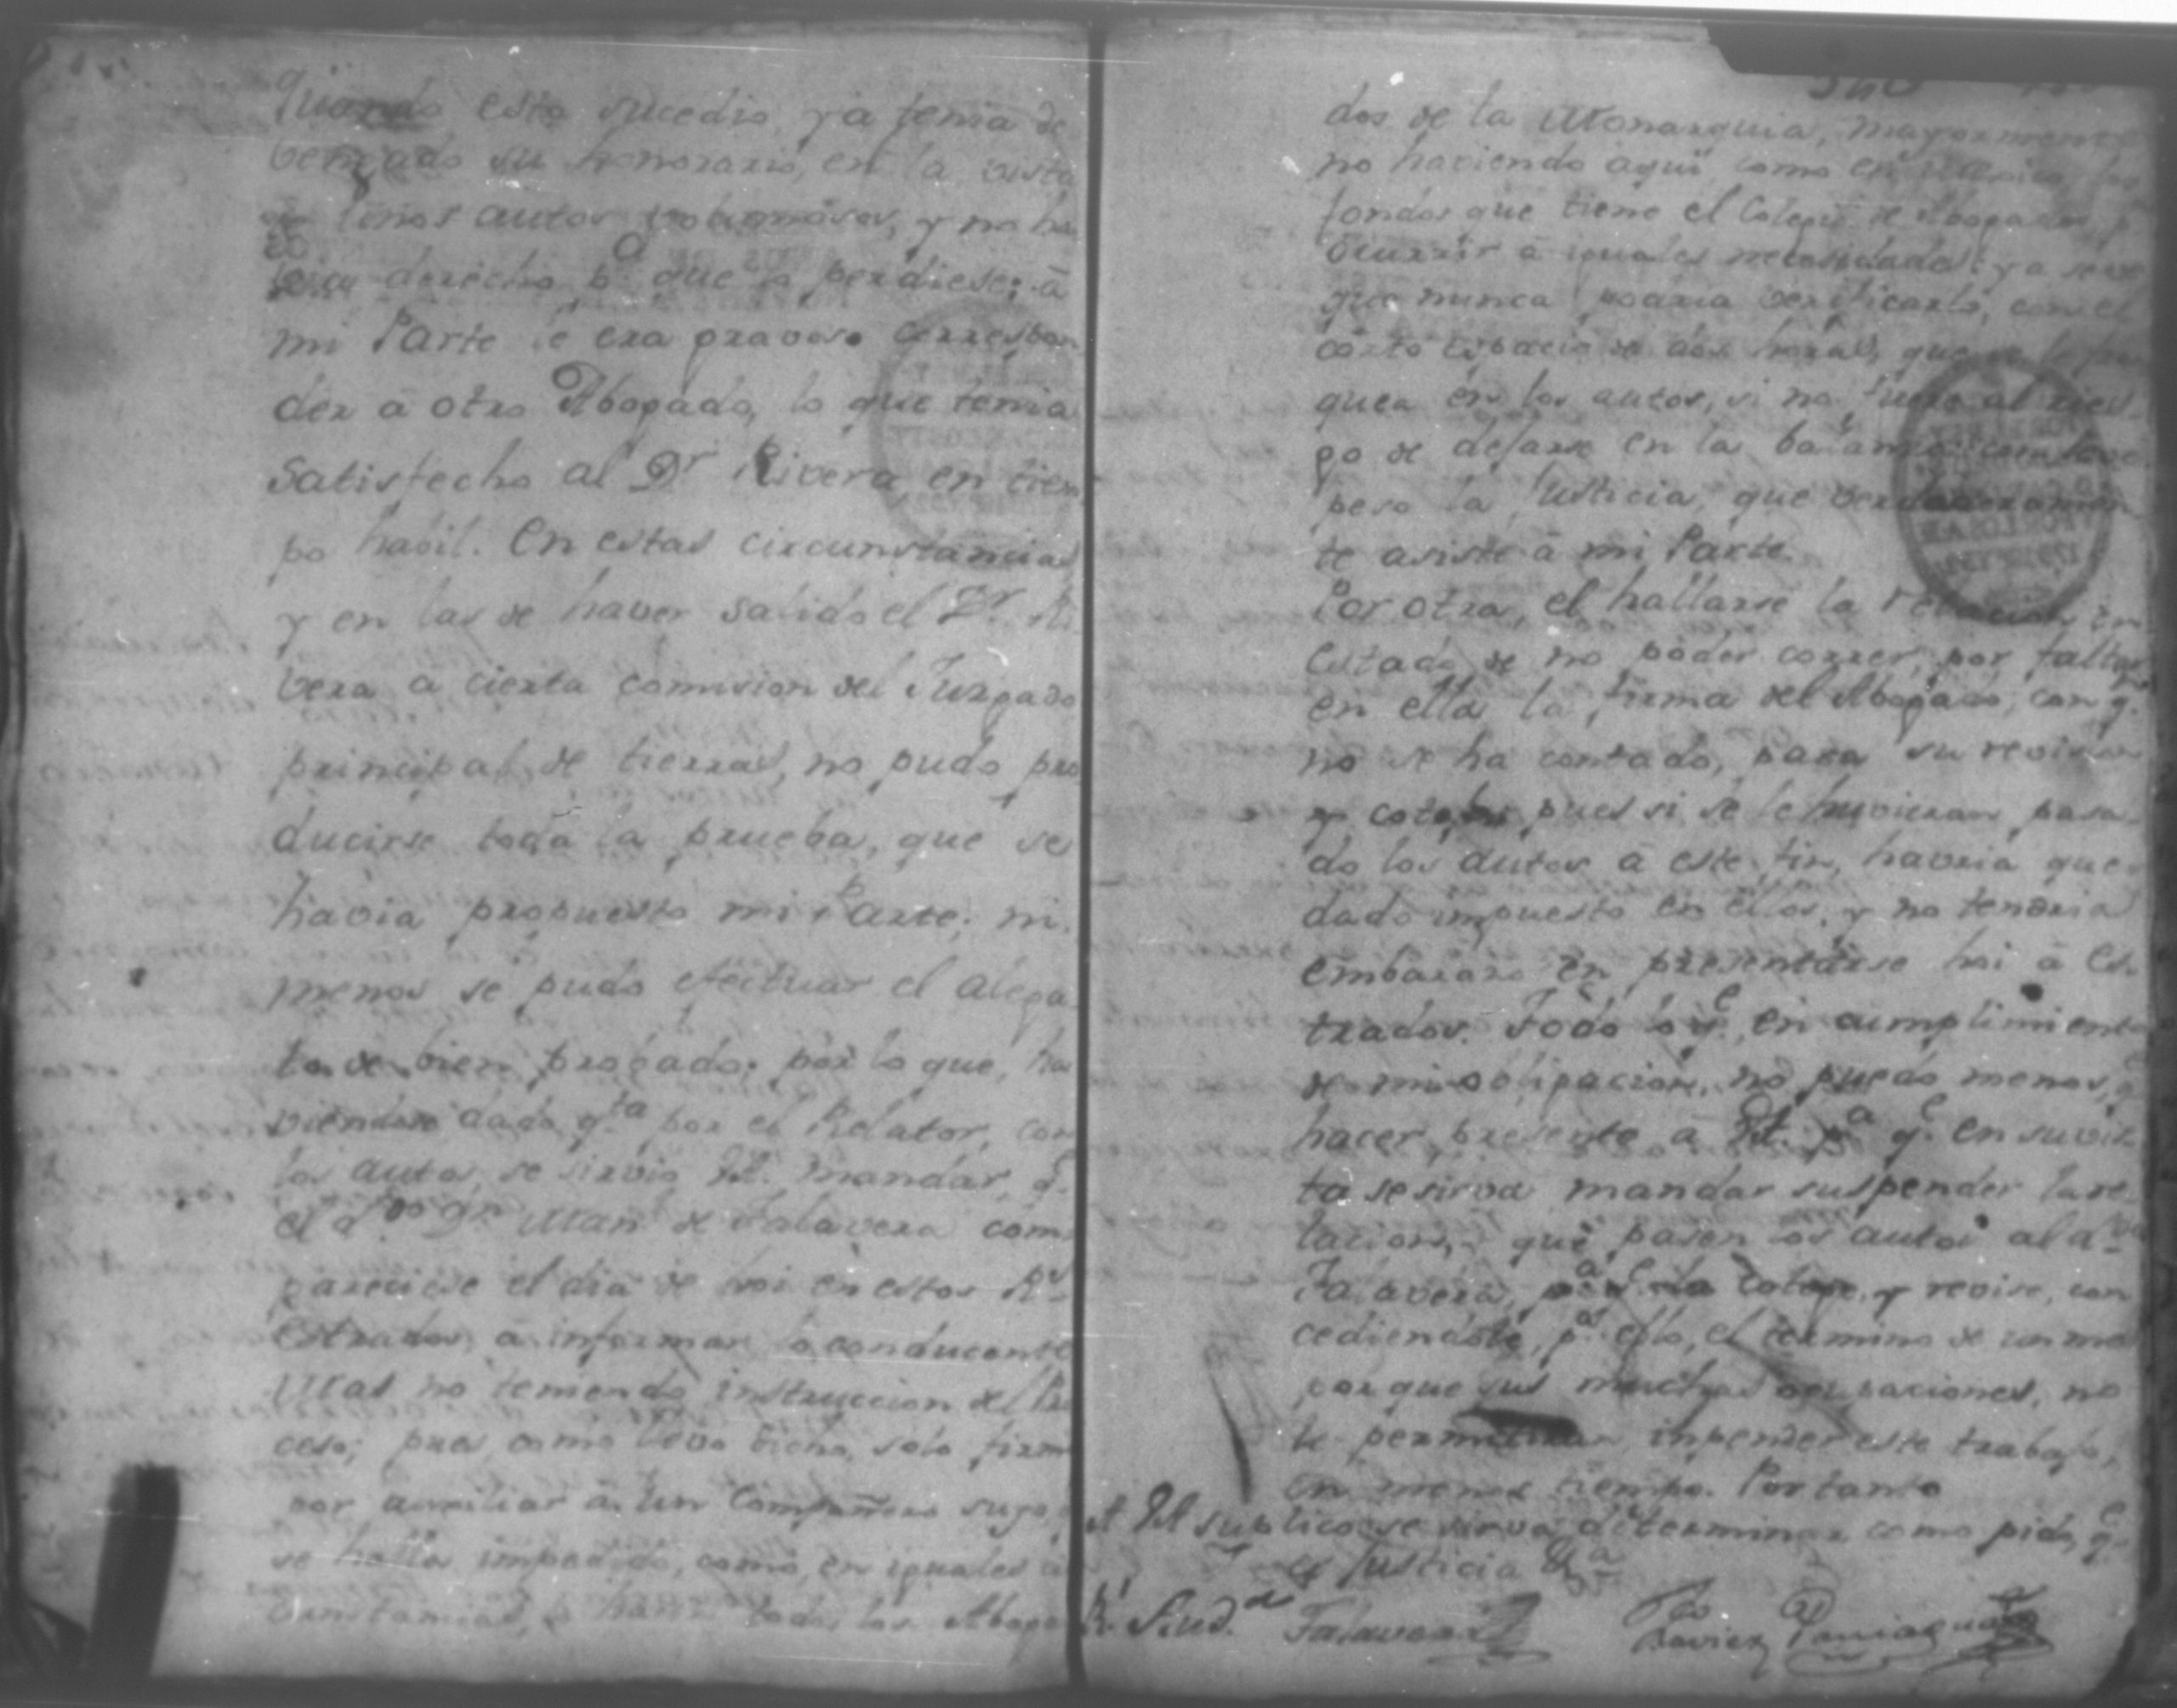 Quando esto sucedio, ya tenia de
vengado su honorario, en la vista
de unos autos voluminosos, y no ha
via derecho pa. que lo perdiese; â
mi Parte le era gravoso correspon
der â otro Abogado, lo que tenia
satisfecho al Dr. Rivera, en tiem
po habil. En estas circunstancias
y en las de haver salido el Dr. Ri
vera a cierta comision del Juzgado
principal de tierras, no pudo pro
ducirse toda la prueba, que se
havia propuesto mi Parte; ni
menos se pudo efectuar el alega
to de bien probado; por lo que, ha
viendose dado qta. por el Relator, con
los autos, se sirvio mandar, q.
el Man de Talavera com
pareciese el dia de hoi en estos Rs
Estrados, â informar lo conducente
Mas no teniendo instruccion del Pro
ceso; pues, como llevo dicho, solo firmó
por auxiliar â un Compañero suyo, q
se halla impedido, como, en iguales cir
cunstancias, lo hacen todos los Aboga
dos de la Monarquia, mayormente
no haviendo aqui como en Mexico, los
fondos que tiene el Colegio de Abogados, p
ocurrir â iguales necesidades: ya se ve
que nunca podria verificarlo, con el
corto espacio de dos horas, que se le fran
quea en los autos, si no fuera al ries
go de dejarse en la balanza
peso la Justicia, que verdaderamen
te asiste â mi Parte.
Por otra, el hallarse la relacion en
estado de no poder correr, por faltar
en ella la firma del Abogado, con qn.
no se ha contado, para su revision
y cotejo, pues si se le huvieran pasa
do los autos â este fin, havria que
dado impuesto en ellos, y no tendria
embarazo en presentarse hoi â Es
trados. Todo lo qe. en cumplimiento
de mi obligacion, no puedo menos, qe
hacer presente â pa. qe. en su vis
ta se sirva mandar suspender la re
lacion, que pasen los autos al
Talavera, cotege, y revise, con
cediendole, pa. ello, el termino de un mes
porque sus muchas ocupaciones, no
le permitiran inpender este trabajo,
en menos tiempo. Por tanto
suplico se sirva determinar como pido, qe.
es Justicia &a.
Talavera
Xavier Paniagua